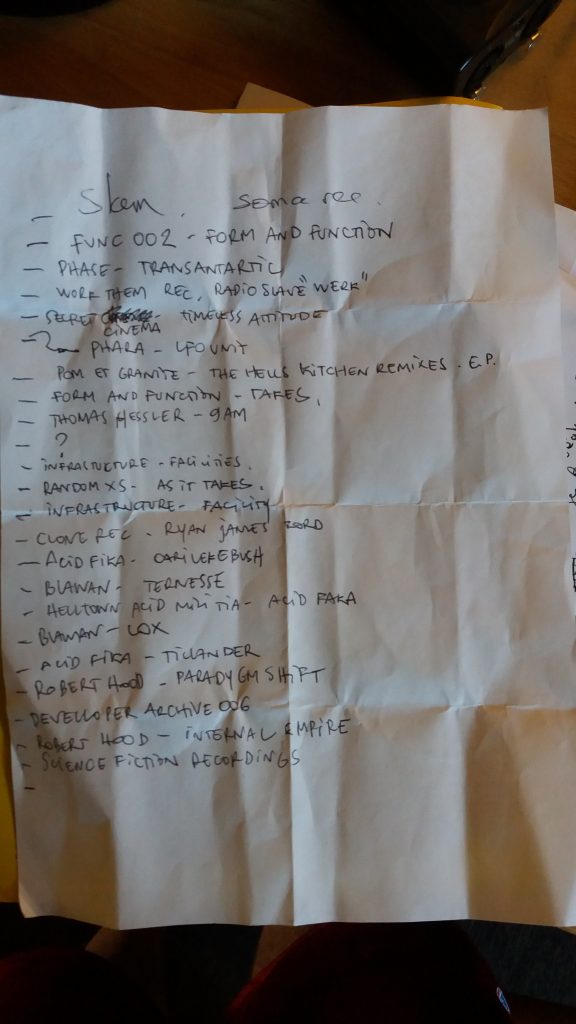 - Skem. Soma rec.
- FUNC 002 - FORM AND FUNCTION
- PHASE - TRANSANTARTIC
- WORK THEM REC, RADIOSLAVE "WERK"
- SECRET CINEMA - TIMELESS ATTITUDE
- PHARA - UFOUNIT
- POM ET GRANITE - THE HELLS KITCHEN REMIXES. E.P.
- FORM AND FUNCTION - TAKES,
- THOMAS HESSLER - 9AM
- ?
- INFRASTUCTURE - FACILITIES.
- RANDOM XS - AS IT TAKES.
- INFRASTRUCTURE - FACILITY
- CLONE REC. RYAN JAMES FORD
- ACID FIKA - CARI LEKEBUSH
- BLAWAN - TERNESSE
- HELLTOWN ACID MILITIA - ACID FAKA
- BLAWAN - LOX
- ACID FIKA - TILLANDER
- ROBERT HOOD - PARADYGM SHIFT
- DEVELOPER ARCHIVE 006
- ROBERT HOOD - INTERNAL EMPIRE
- SCIENCE FICTION RECORDINGS
-